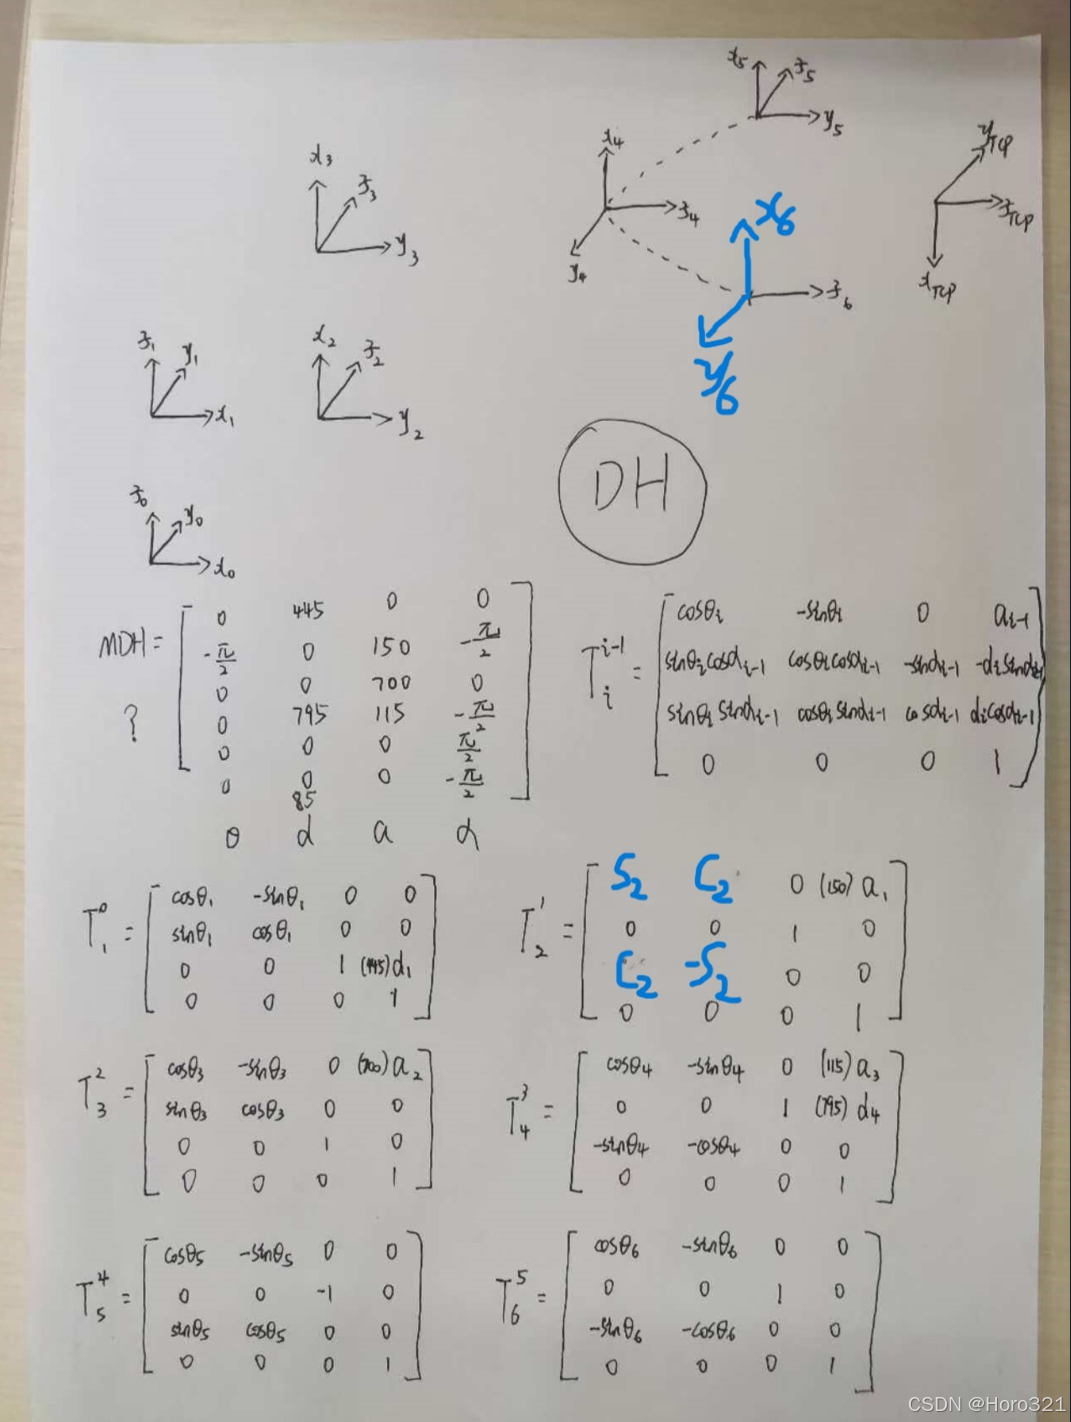 x₅ z₅
y₅
x₄
z₄
y₄
x₃ z₃
y₃
y_TCP
z_TCP
x_TCP
x₆
z₆
y₆
z₁ y₁
x₁
x₂ z₂
y₂
DH
z₀ y₀
x₀
MDH =
?
0 445 0 0
-π/2 0 150 -π/2
0 0 700 0
0 795 115 -π/2
0 0 0 π/2
0 0 0 -π/2
85
θ d a α
T_i^{i-1} =
cosθi -sinθi 0 a_{i-1}
sinθi cosα_{i-1} cosθi cosα_{i-1} -sinα_{i-1} -di sinα_{i-1}
sinθi sinα_{i-1} cosθi sinα_{i-1} cosα_{i-1} di cosα_{i-1}
0 0 0 1
T₁⁰ =
cosθ₁ -sinθ₁ 0 0
sinθ₁ cosθ₁ 0 0
0 0 1 (445) d₁
0 0 0 1
T₂¹ =
S₂ C₂ 0 (150) a₁
0 0 1 0
C₂ -S₂ 0 0
0 0 0 1
T₃² =
cosθ₃ -sinθ₃ 0 (700) a₂
sinθ₃ cosθ₃ 0 0
0 0 1 0
0 0 0 1
T₄³ =
cosθ₄ -sinθ₄ 0 (115) a₃
0 0 1 (795) d₄
-sinθ₄ -cosθ₄ 0 0
0 0 0 1
T₅⁴ =
cosθ₅ -sinθ₅ 0 0
0 0 -1 0
sinθ₅ cosθ₅ 0 0
0 0 0 1
T₆⁵ =
cosθ₆ -sinθ₆ 0 0
0 0 1 0
-sinθ₆ -cosθ₆ 0 0
0 0 0 1
CSDN @Horo321